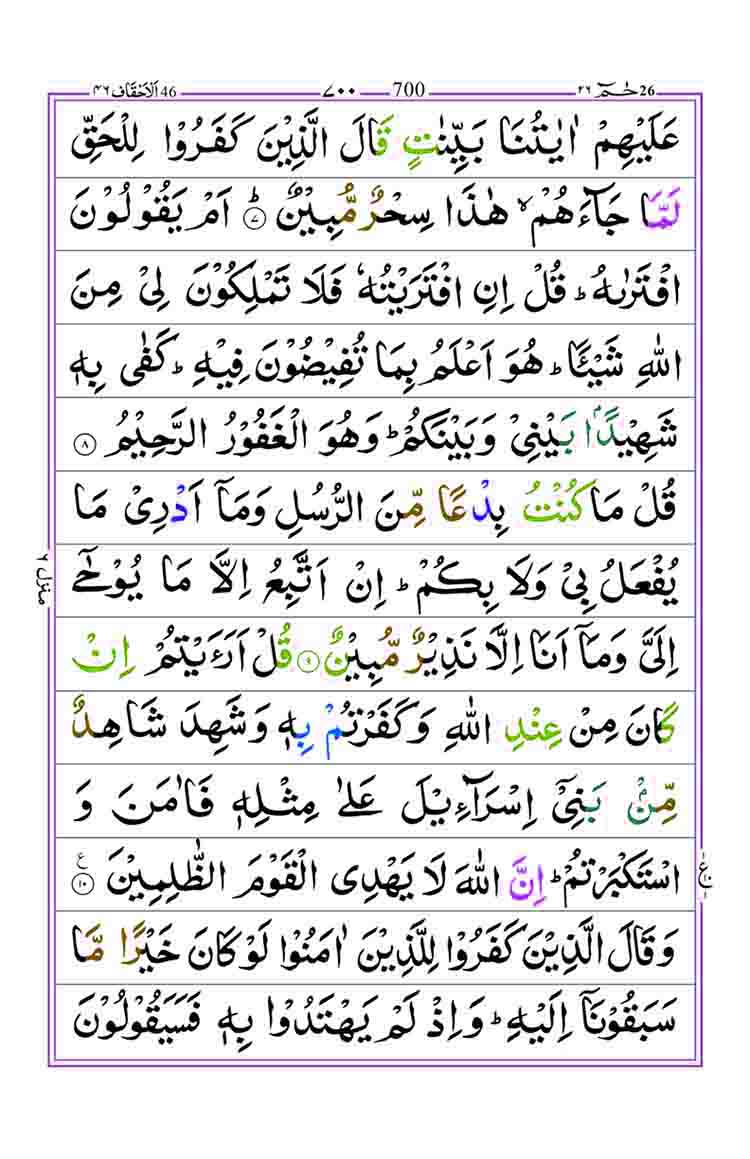 46 اَلْاَحْقَاف ۴۶ ۷۰۰ 700 ۲۶ حٰمٓ 26
عَلَيْهِمْ اٰيٰتُنَا بَيِّنٰتٍ قَالَ الَّذِيْنَ كَفَرُوْا لِلْحَقِّ
لَمَّا جَآءَهُمْ ۙ هٰذَا سِحْرٌ مُّبِيْنٌ ؕ ۷ اَمْ يَقُوْلُوْنَ
افْتَرٰىهُ ؕ قُلْ اِنِ افْتَرَيْتُهٗ فَلَا تَمْلِكُوْنَ لِيْ مِنَ
اللّٰهِ شَيْـًٔا ؕ هُوَ اَعْلَمُ بِمَا تُفِيْضُوْنَ فِيْهِ ؕ كَفٰى بِهٖ
شَهِيْدًۢا بَيْنِيْ وَبَيْنَكُمْ ؕ وَهُوَ الْغَفُوْرُ الرَّحِيْمُ ۸
قُلْ مَا كُنْتُ بِدْعًا مِّنَ الرُّسُلِ وَمَآ اَدْرِيْ مَا
يُفْعَلُ بِيْ وَلَا بِكُمْ ؕ اِنْ اَتَّبِعُ اِلَّا مَا يُوْحٰٓى
منزل ۶
اِلَيَّ وَمَآ اَنَا اِلَّا نَذِيْرٌ مُّبِيْنٌ ۹ قُلْ اَرَءَيْتُمْ اِنْ
كَانَ مِنْ عِنْدِ اللّٰهِ وَكَفَرْتُمْ بِهٖ وَشَهِدَ شَاهِدٌ
مِّنْۢ بَنِيْٓ اِسْرَآءِيْلَ عَلٰى مِثْلِهٖ فَاٰمَنَ وَ
اسْتَكْبَرْتُمْ ؕ اِنَّ اللّٰهَ لَا يَهْدِى الْقَوْمَ الظّٰلِمِيْنَ ۱۰ ع
وَقَالَ الَّذِيْنَ كَفَرُوْا لِلَّذِيْنَ اٰمَنُوْا لَوْ كَانَ خَيْرًا مَّا
سَبَقُوْنَآ اِلَيْهِ ؕ وَاِذْ لَمْ يَهْتَدُوْا بِهٖ فَسَيَقُوْلُوْنَ